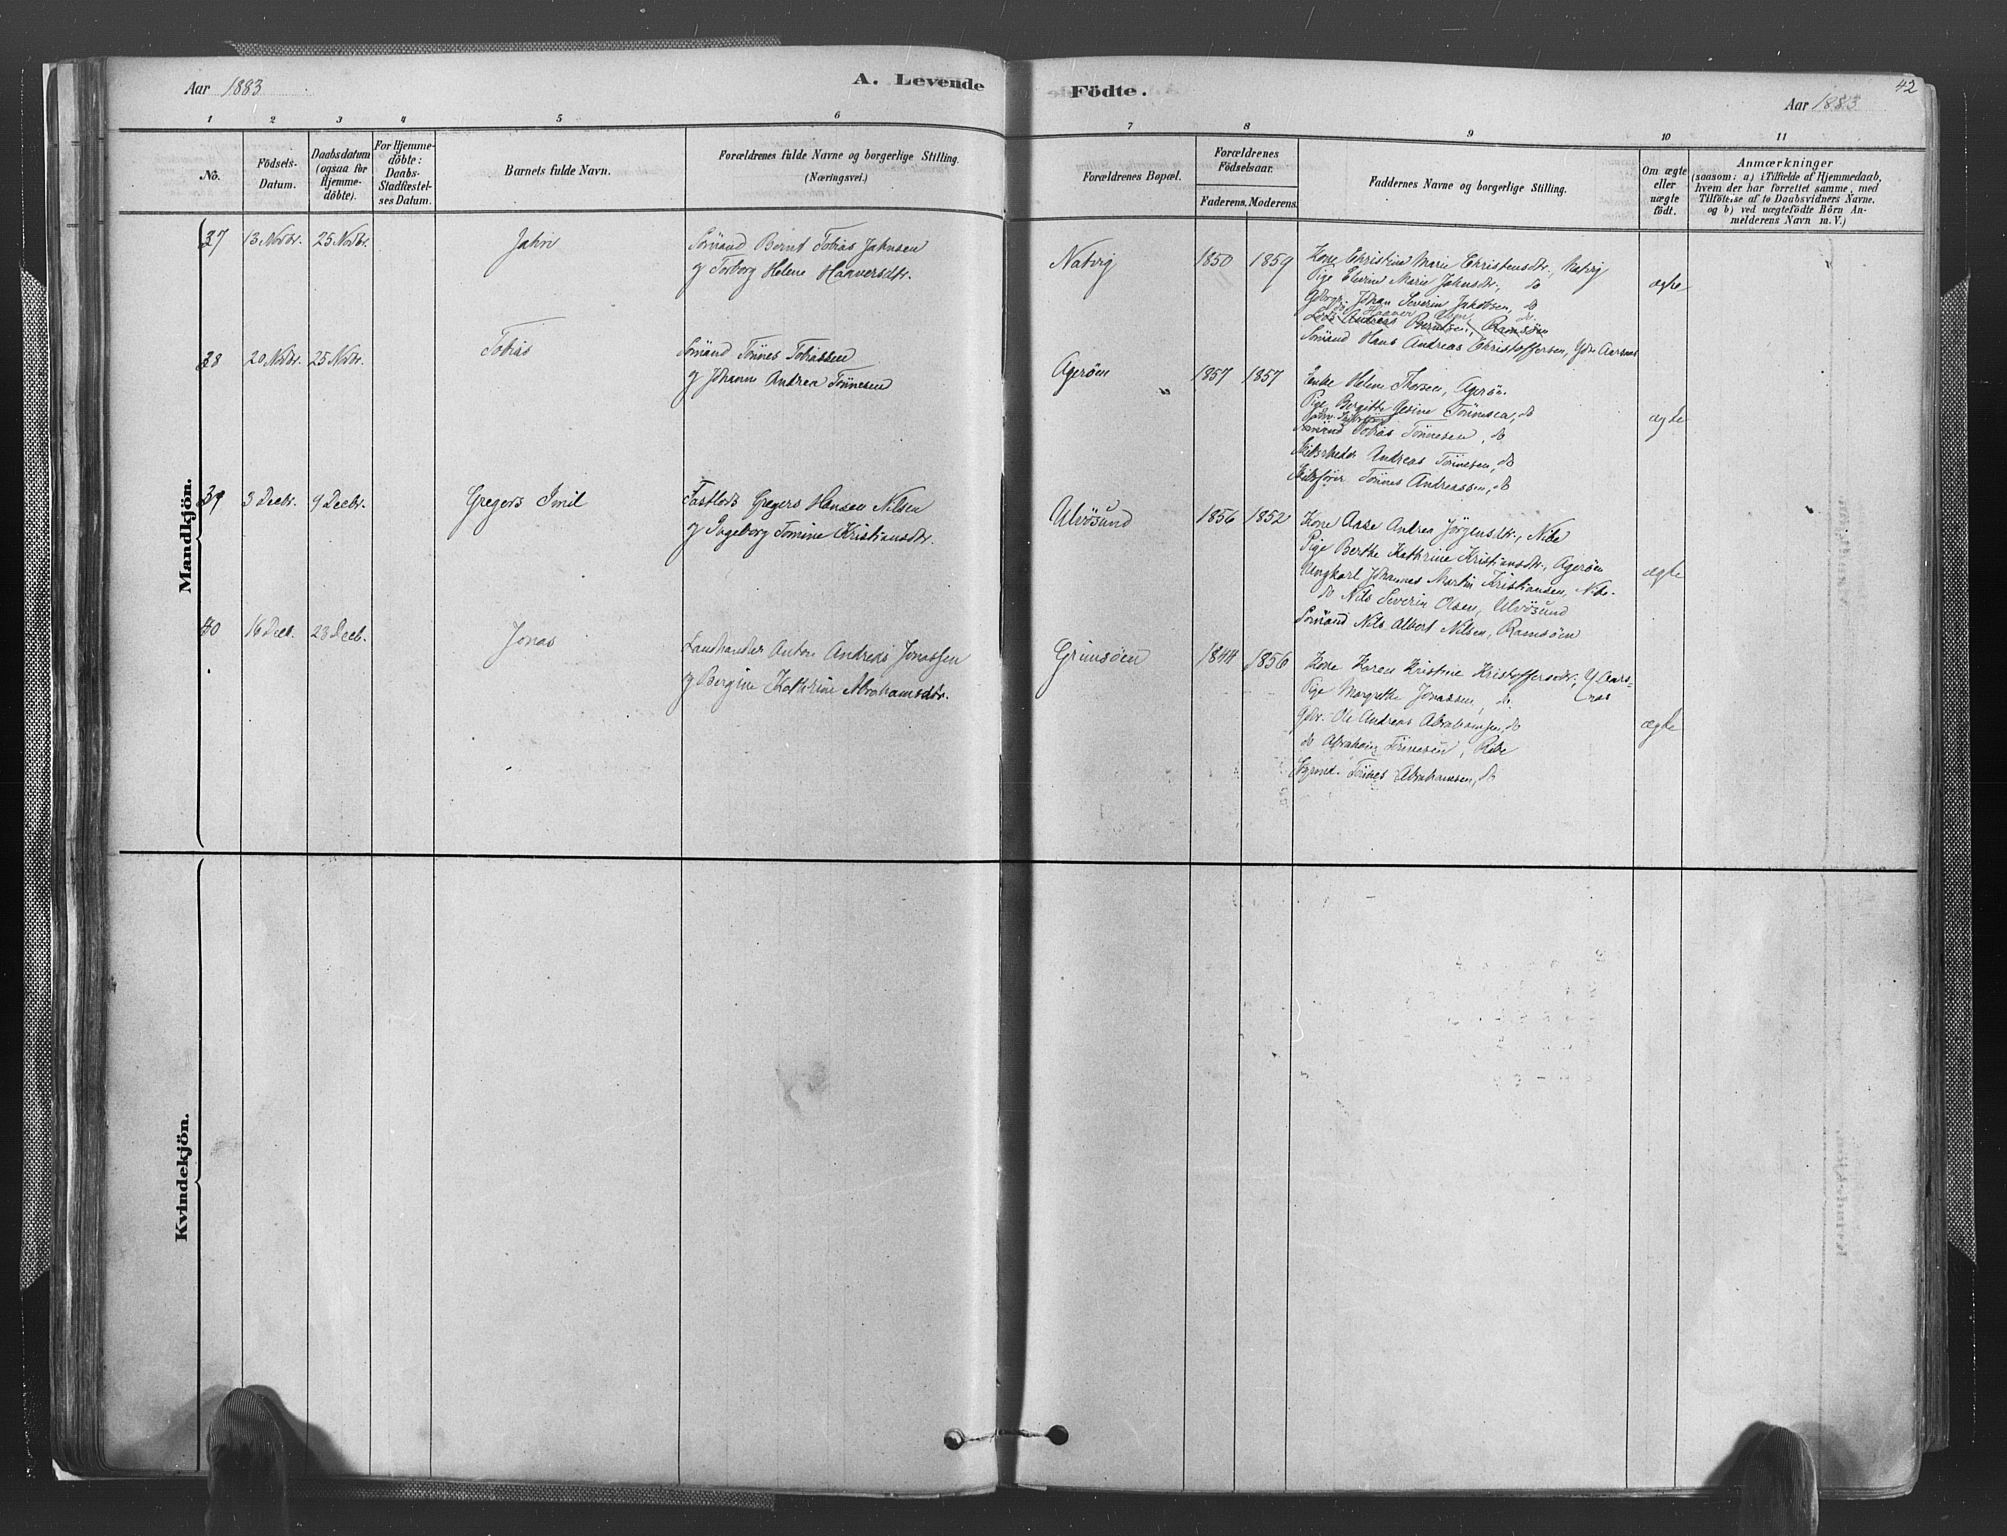 Aar 1883
A. Levende
Födte.
Aar 1883
42
1 2 3 4 5 6 7 8 9 10 11
No.
Födsels-
Datum.
Daabsdatum
(ogsaa for
Hjemme-
döbte).
For Hjemme-
döbte:
Daabs-
Stadfæstel-
ses Datum.
Barnets fulde Navn.
Forældrenes fulde Navne og borgerlige Stilling.
(Næringsvei.)
Forældrenes Bopæl.
Forældrenes
Födselsaar.
Faderens. Moderens.
Faddernes Navne og borgerlige Stilling.
Om ægte
eller
uægte
født.
Anmærkninger
(saasom: a) i Tilfælde af Hjemmedaab,
hvem der har forrettet samme, med
Tilföielse af to Daabsvidners Navne.
og b) ved uægtefödte Börn An-
melderens Navn m. V.)
Mandkjön.
37 13 Novbr. 25 Novbr.
Sömand Bernt Tobias Jahnsen
og Torborg Helene Haaversdtr.
Natvig 1850 1859
Kone Christine Marie Christensdtr., Natvig
Pige Elevine Marie Jahnsdtr., do
Johan Severin Jakobsen, do
Andreas Berntsen, Ramsöen
Sömand Hans Andreas Christoffersen, Ydre Aarsnes
ægte
38 20 Novbr. 25 Novbr. Tobias
Sömand Tönnes Tobiassen
og Johanne Andrea Tönnesen
Ageröen 1857 1857
Enke Helene Thorsen, Ageröen
Pige Bergitte Gesine Tönnesen, do
Sömand Tobias Tönnesen, do
Andreas Tönnesen, do
Skibsförer Tönnes Andreassen, do
ægte
39 3 Decbr. 9 Decbr. Gregers Emil
Gregers Hansen Nilsen
og Ingeborg Tomine Kristiansdtr.
Ulvösund 1856 1852
Kone Aase Andrea Jörgensdtr., Nibe
Pige Berthe Kathrine Kristiansdtr., Ageröen
Ungkarl Johannes Martin Kristiansen, Nibe
do Nils Severin Olsen, Ulvösund
Sömand Nils Albert Nilsen, Ramsöen
ægte
40 16 Decb. 23 Decb. Jonas
Landhandler Anton Andreas Jonassen
og Bergine Kathrine Abrahamsdtr.
Grimsöen 1844 1856
Kone Karen Kristine Kristoffersdtr., Y Aars-
nes
Pige Margrethe Jonassen, do
Gdbr. Ole Andreas Abrahamsen, do
do Abraham Tönnesen, Ribe
Tönnes Abrahamsen, do
ægte
Kvindekjön.